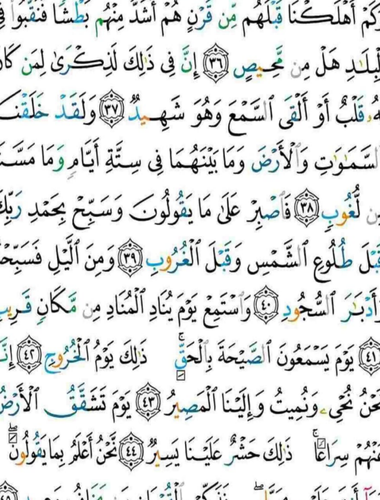 كَمْ أَهْلَكْنَا قَبْلَهُم مِّن قَرْنٍ هُمْ أَشَدُّ مِنْهُم بَطْشًا فَنَقَّبُوا۟ فِى
لْبِلَٰدِ هَلْ مِن مَّحِيصٍ ٣٦ إِنَّ فِى ذَٰلِكَ لَذِكْرَىٰ لِمَن كَانَ
هُۥ قَلْبٌ أَوْ أَلْقَى ٱلسَّمْعَ وَهُوَ شَهِيدٌ ٣٧ وَلَقَدْ خَلَقْنَا
ٱلسَّمَٰوَٰتِ وَٱلْأَرْضَ وَمَا بَيْنَهُمَا فِى سِتَّةِ أَيَّامٍ وَمَا مَسَّنَا
مِن لُّغُوبٍ ٣٨ فَٱصْبِرْ عَلَىٰ مَا يَقُولُونَ وَسَبِّحْ بِحَمْدِ رَبِّكَ
قَبْلَ طُلُوعِ ٱلشَّمْسِ وَقَبْلَ ٱلْغُرُوبِ ٣٩ وَمِنَ ٱلَّيْلِ فَسَبِّحْهُ
وَأَدْبَٰرَ ٱلسُّجُودِ ٤٠ وَٱسْتَمِعْ يَوْمَ يُنَادِ ٱلْمُنَادِ مِن مَّكَانٍ قَرِيبٍ
٤١ يَوْمَ يَسْمَعُونَ ٱلصَّيْحَةَ بِٱلْحَقِّ ۚ ذَٰلِكَ يَوْمُ ٱلْخُرُوجِ ٤٢ إِنَّا
نَحْنُ نُحْىِۦ وَنُمِيتُ وَإِلَيْنَا ٱلْمَصِيرُ ٤٣ يَوْمَ تَشَقَّقُ ٱلْأَرْضُ
عَنْهُمْ سِرَاعًا ۚ ذَٰلِكَ حَشْرٌ عَلَيْنَا يَسِيرٌ ٤٤ نَّحْنُ أَعْلَمُ بِمَا يَقُولُونَ ۖ